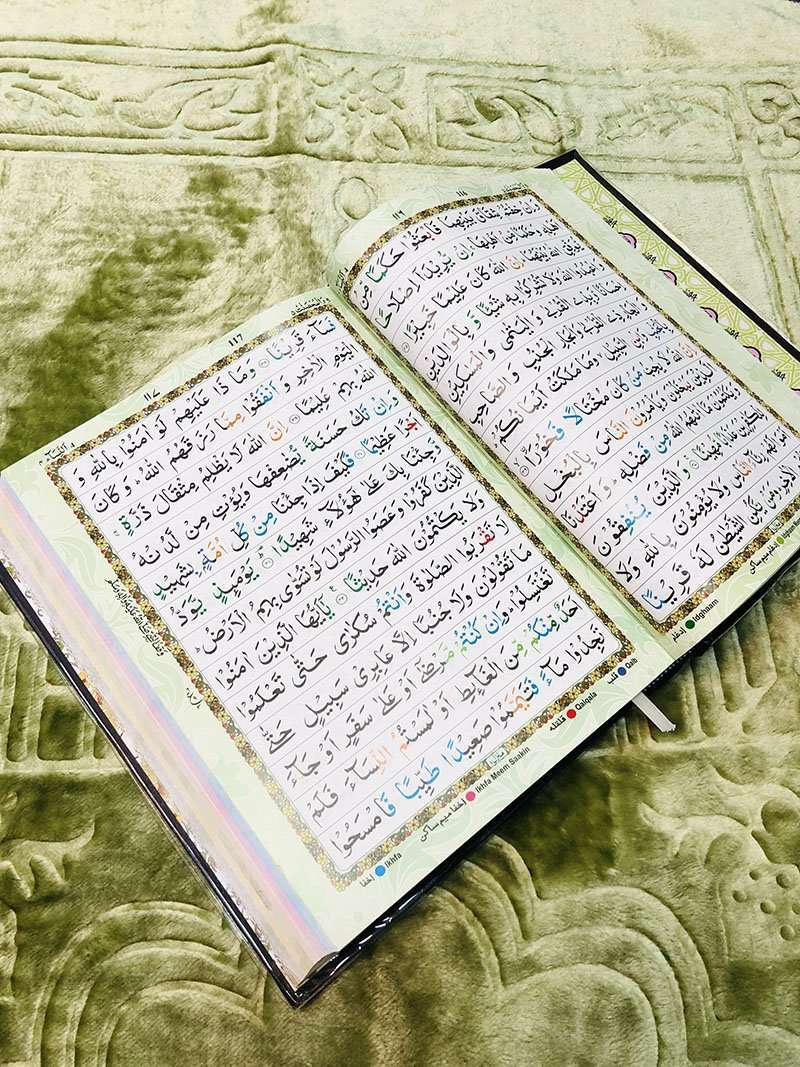 ١١٦ 116
وَاِنْ خِفْتُمْ شِقَاقَ بَيْنِهِمَا فَابْعَثُوْا حَكَمًا مِّنْ
اَهْلِهٖ وَحَكَمًا مِّنْ اَهْلِهَا ۚ اِنْ يُّرِيْدَاۤ اِصْلَاحًا
يُّوَفِّقِ اللّٰهُ بَيْنَهُمَا ؕ اِنَّ اللّٰهَ كَانَ عَلِيْمًا خَبِيْرًا
وَاعْبُدُوا اللّٰهَ وَلَا تُشْرِكُوْا بِهٖ شَيْـًٔا وَّ بِالْوَالِدَيْنِ
اِحْسَانًا وَّ بِذِي الْقُرْبٰى وَ الْيَتٰمٰى وَ الْمَسٰكِيْنِ
وَالْجَارِ ذِي الْقُرْبٰى وَالْجَارِ الْجُنُبِ وَ الصَّاحِبِ
بِالْجَنْۢبِ وَابْنِ السَّبِيْلِ ۙ وَمَا مَلَكَتْ اَيْمَانُكُمْ ؕ
اِنَّ اللّٰهَ لَا يُحِبُّ مَنْ كَانَ مُخْتَالًا فَخُوْرَا
الَّذِيْنَ يَبْخَلُوْنَ وَيَاْمُرُوْنَ النَّاسَ بِالْبُخْلِ
وَيَكْتُمُوْنَ مَاۤ اٰتٰىهُمُ اللّٰهُ مِنْ فَضْلِهٖ ؕ وَ اَعْتَدْنَا
لِلْكٰفِرِيْنَ عَذَابًا مُّهِيْنًا وَ الَّذِيْنَ يُنْفِقُوْنَ
اَمْوَالَهُمْ رِئَآءَ النَّاسِ وَلَا يُؤْمِنُوْنَ بِاللّٰهِ وَلَا
بِالْيَوْمِ الْاٰخِرِ ؕ وَمَنْ يَّكُنِ الشَّيْطٰنُ لَهٗ قَرِيْنًا
إدغام Idghaam
قلب Qalb
١١٧ 117
فَسَآءَ قَرِيْنًا وَ مَا ذَا عَلَيْهِمْ لَوْ اٰمَنُوْا بِاللّٰهِ وَ
الْيَوْمِ الْاٰخِرِ وَ اَنْفَقُوْا مِمَّا رَزَقَهُمُ اللّٰهُ ؕ وَ كَانَ
اللّٰهُ بِهِمْ عَلِيْمًا اِنَّ اللّٰهَ لَا يَظْلِمُ مِثْقَالَ ذَرَّةٍ ۚ
وَ اِنْ تَكُ حَسَنَةً يُّضٰعِفْهَا وَيُؤْتِ مِنْ لَّدُنْهُ
اَجْرًا عَظِيْمًا فَكَيْفَ اِذَا جِئْنَا مِنْ كُلِّ اُمَّةٍۭ بِشَهِيْدٍ
وَّ جِئْنَا بِكَ عَلٰى هٰۤؤُلَآءِ شَهِيْدًا يَوْمَىِٕذٍ يَّوَدُّ
الَّذِيْنَ كَفَرُوْا وَعَصَوُا الرَّسُوْلَ لَوْ تُسَوّٰى بِهِمُ الْاَرْضُ ؕ
وَلَا يَكْتُمُوْنَ اللّٰهَ حَدِيْثًا يٰۤاَيُّهَا الَّذِيْنَ اٰمَنُوْا
لَا تَقْرَبُوا الصَّلٰوةَ وَاَنْتُمْ سُكٰرٰى حَتّٰى تَعْلَمُوْا
مَا تَقُوْلُوْنَ وَلَا جُنُبًا اِلَّا عَابِرِيْ سَبِيْلٍ حَتّٰى
تَغْتَسِلُوْا ؕ وَاِنْ كُنْتُمْ مَّرْضٰۤى اَوْ عَلٰى سَفَرٍ اَوْ جَآءَ
اَحَدٌ مِّنْكُمْ مِّنَ الْغَآىِٕطِ اَوْ لٰمَسْتُمُ النِّسَآءَ فَلَمْ
تَجِدُوْا مَآءً فَتَيَمَّمُوْا صَعِيْدًا طَيِّبًا فَامْسَحُوْا
قلقلہ Qalqala
إخفا میم ساکن Ikhfa Meem Saakin
إخفا Ikhfa